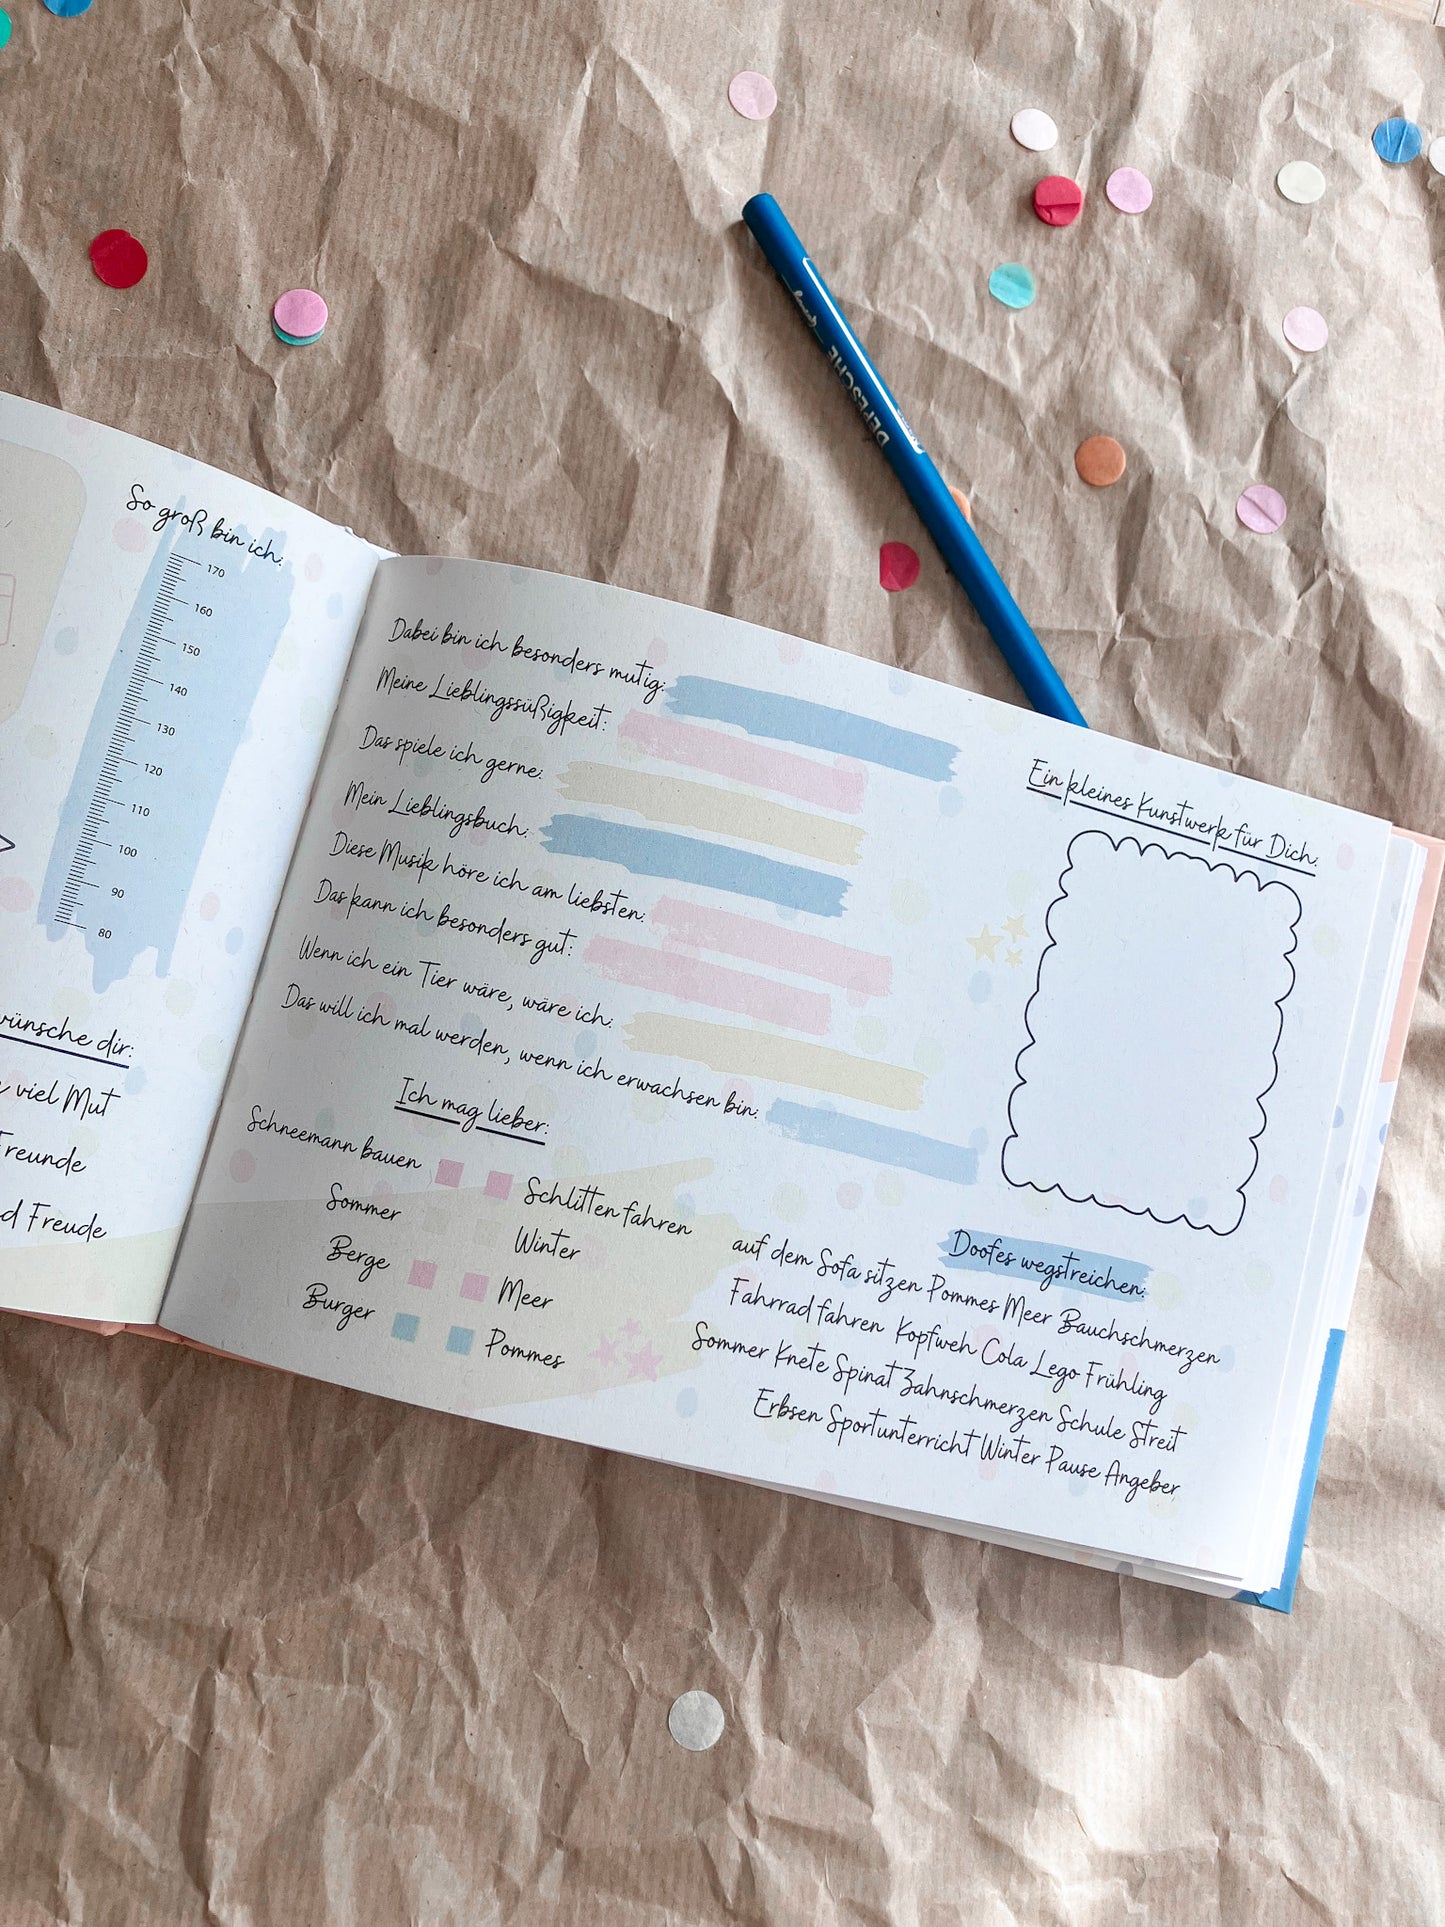 DEPESCHE
So groß bin ich:
170
160
150
140
130
120
110
100
90
80
wünsche dir:
viel Mut
Freunde
d Freude
Dabei bin ich besonders mutig:
Meine Lieblingssüßigkeit:
Das spiele ich gerne:
Mein Lieblingsbuch:
Diese Musik höre ich am liebsten:
Das kann ich besonders gut:
Wenn ich ein Tier wäre, wäre ich:
Das will ich mal werden, wenn ich erwachsen bin:
Ich mag lieber:
Schneemann bauen Schlitten fahren
Sommer Winter
Berge Meer
Burger Pommes
Ein kleines Kunstwerk für Dich:
Doofes wegstreichen:
auf dem Sofa sitzen Pommes Meer Bauchschmerzen
Fahrrad fahren Kopfweh Cola Lego Frühling
Sommer Knete Spinat Zahnschmerzen Schule Streit
Erbsen Sportunterricht Winter Pause Angeber